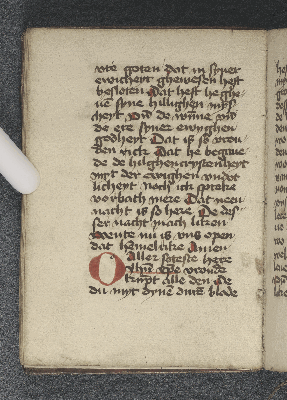 vte goten dat in syner
ewicheyt ghewesen heft
besloten Dat heft he ghe
ue syne hillighen mys
heyt vnd de wunne vnd
de ere syner ewyghen
godheyt Dat is so vrou
den rick Dat he begaue
de de hilghen crystenheyt
myt der ewighen vndot
licheyt noch ick spreke
vorbach mere Dat neen
nacht is so here De des
ser nacht mach liken
Wente nu is vns open
dat hemelrike Amen
O Aller soteste here
Ihu De vronde
krupt alle den De
du myt dyne durë blode